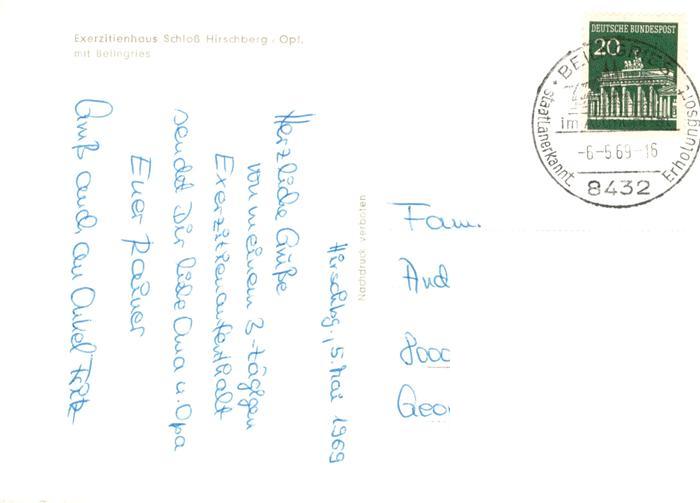 Exerzitienhaus Schloß Hirschberg - Opf.
mit Beilngries
Hirschbg., 5. Mai 1969
Herzliche Grüße
von meinem 3-tägigen
Exerzitienaufenthalt
sendet Dir liebe Oma u. Opa
Euer Rainer
Gruß auch an Onkel Fritz
Nachdruck verboten
DEUTSCHE BUNDESPOST
20
im
-6.-5.69-16
8432
Staatl. anerkannt.
Fam.
And
8000
Geo